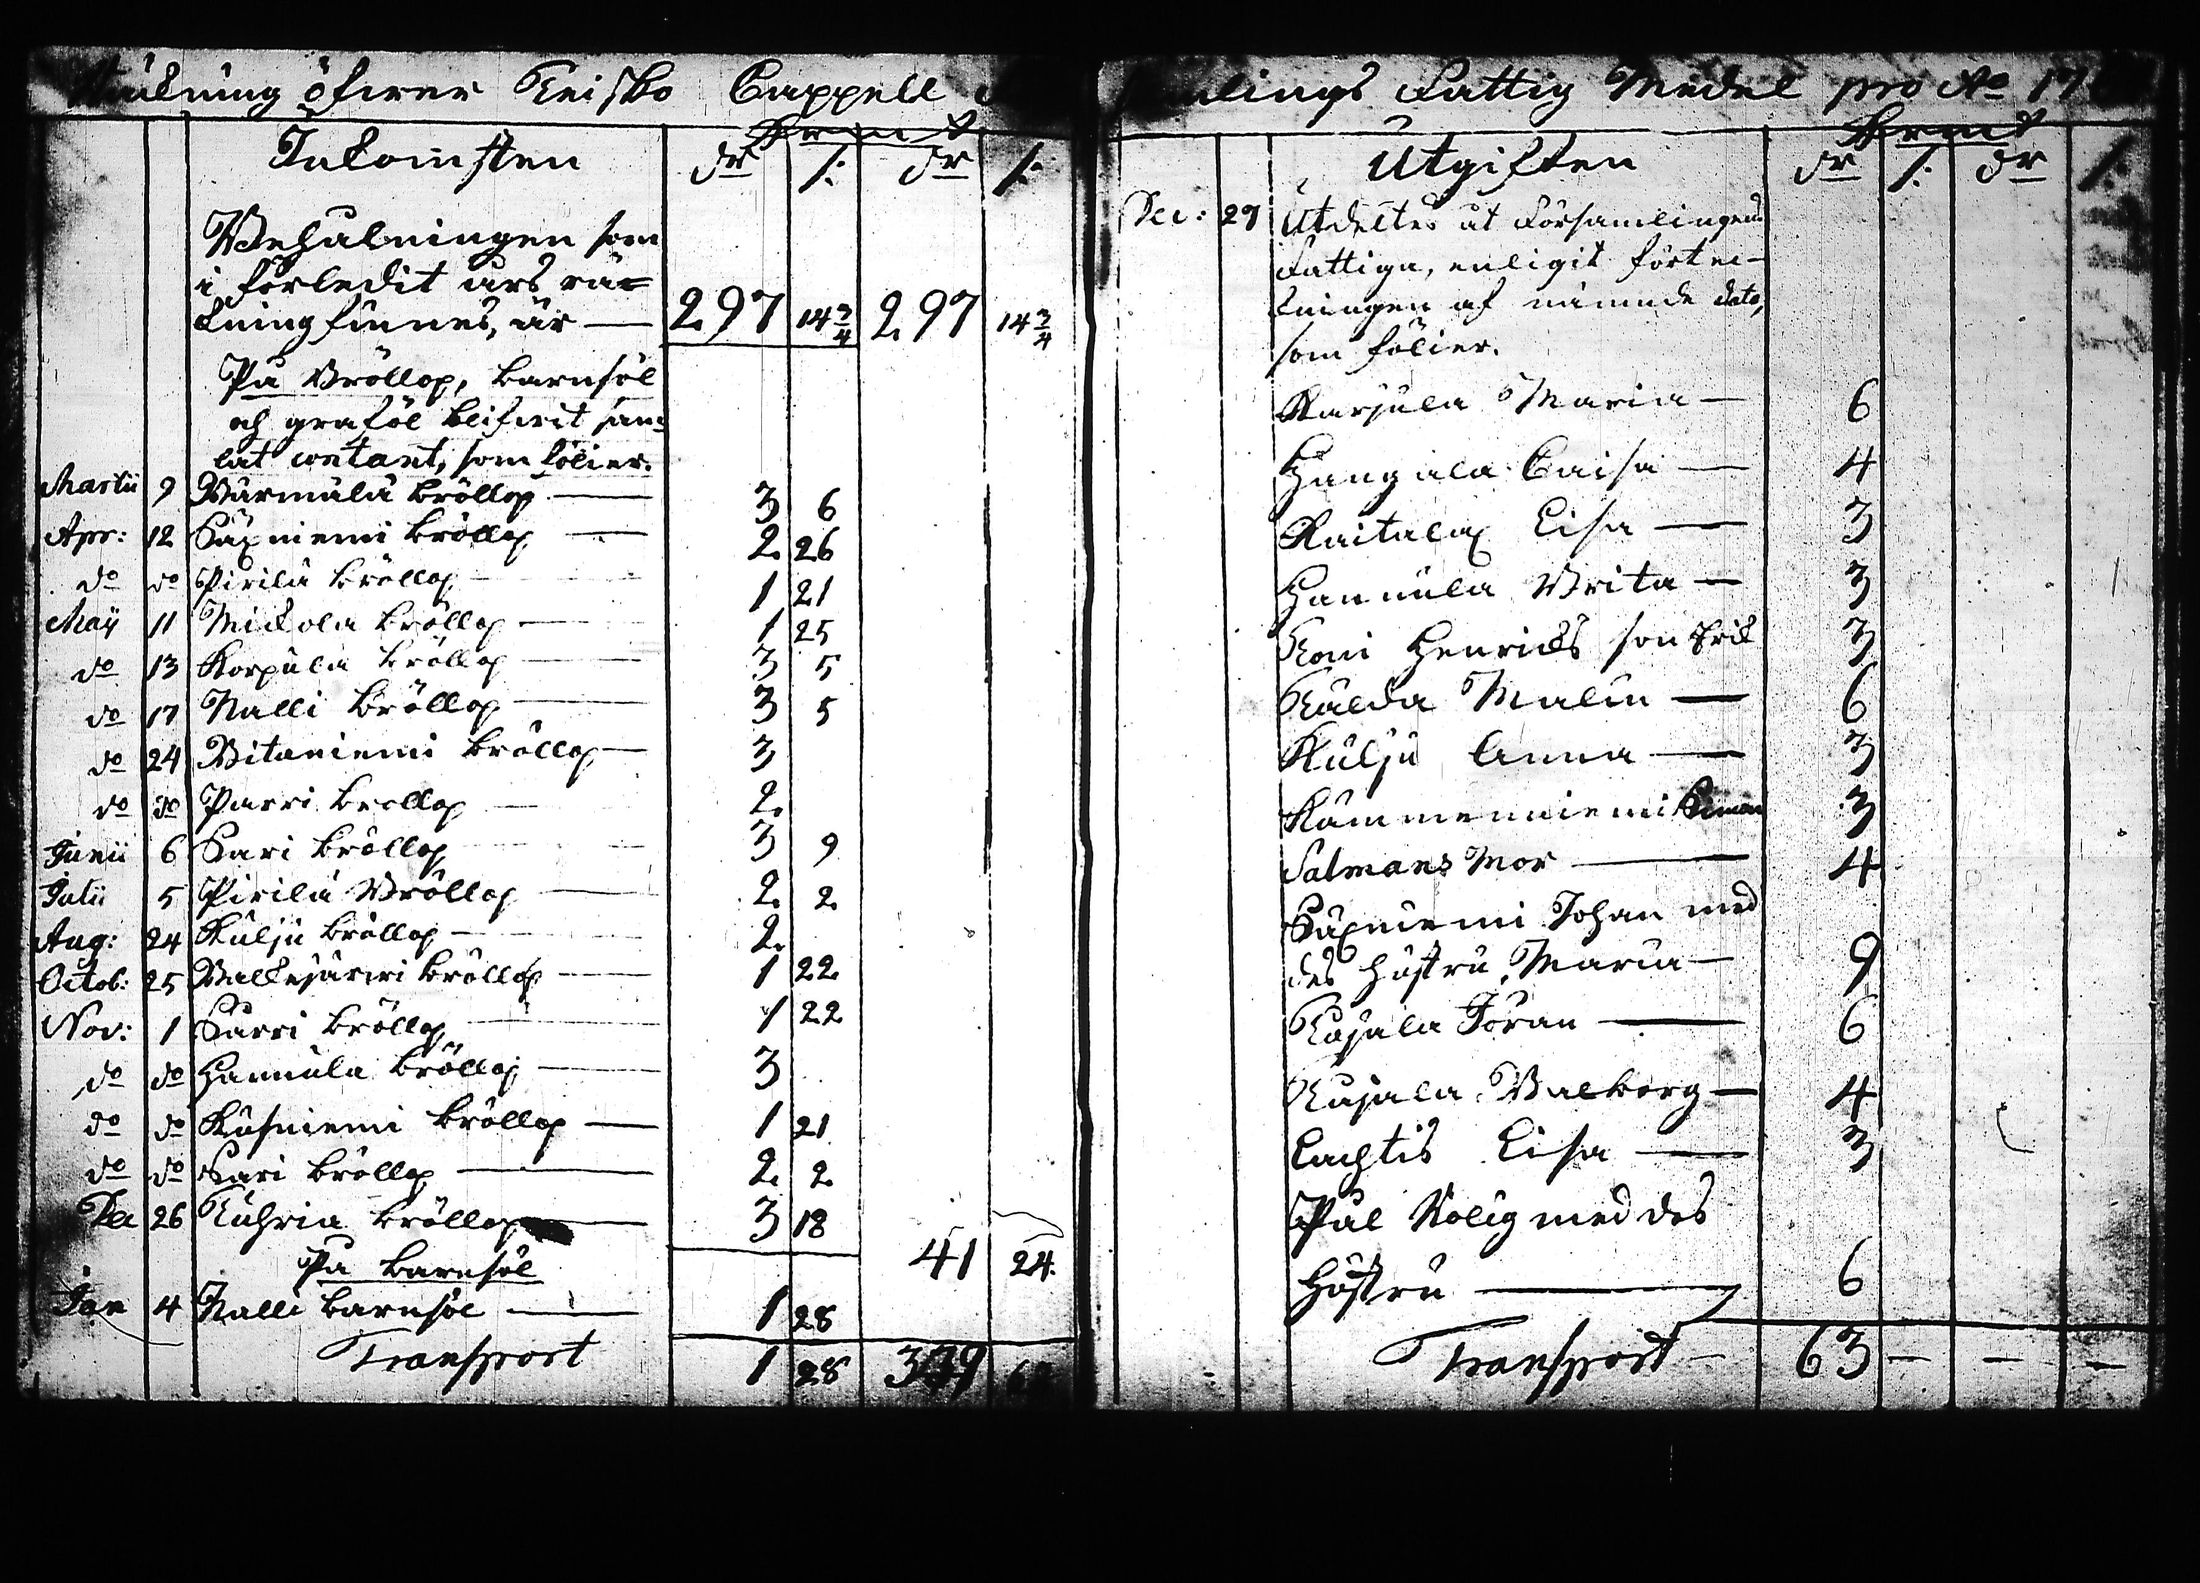 Räckning öfwer Teisko Cappell
Krmt
Inkomsten dr /: dr /:
Behålningen som
i förledit års räc=
kning finnes, är — 297 14 3/4 297 14 3/4
På Bröllop, barnsöl
och graföl blifwit sam=
lat contant, som följer.
Martii 9 Wärmälä bröllop — 3 6
Apr: 12 Säxniemi bröllop — 2. 26
do do Pirilä bröllop — 1 21
Maij 11 Mickola bröllop — 1 25
do 13 Korpula bröllop — 3 5
do 17 Nalli bröllop — 3 5
do 24 Vitaniemi bröllop — 3
do do Parri bröllop — 2.
Junii 6 Sari bröllop 3 9
Julii 5 Pirilä Bröllop — 2. 2.
Aug: 24 Kulju bröllop — 2.
Octob: 25 Walkejärwi bröllop — 1 22
Nov: 1 Surri bröllop — 1 22
do do Hannula bröllop — 3
do do Käsniemi bröllop — 1 21
do do Sari bröllop — 2. 2.
Dec 26 bröllop — 3 18
41 24.
På barnsöl
Jan 4 Nalli barnsöl — 1 28
Transport 1 28 339
Fattig Medel pro Ao 17
Krmt
Utgiften dr /: dr /:
Dec: 27 Utdeltes åt Församlingens
Fattiga, enligit förtec-
kningen af nämnde dato,
som följer.
Karjula Maria — 6
Hangala Caisa — 4
Kaitalax Lisa — 3
Hannula Brita — 3
Toni Henrichs son Erik 3
Malin — 6
Kulju Anna — 3
Kämmenniemi Simon 3
Salmans Mor — 4
Säxniemi Johan med
des hustru Maria — 9
Kojala Göran — 6
Kujala Walborg — 4
Lachtis Lisa — 3
Pål Rolig med des
hustru — 6
Transport — 63 — — —